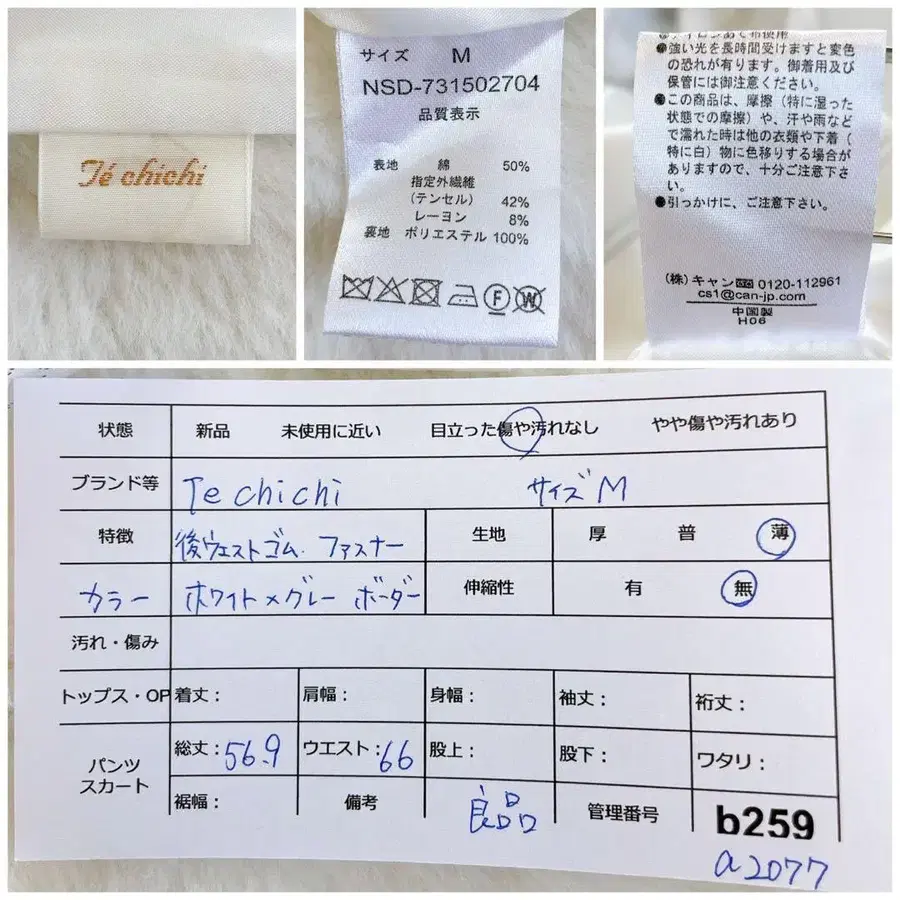 Té chichi
サイズ M
NSD-731502704
品質表示
表地 綿 50%
指定外繊維
(テンセル) 42%
レーヨン 8%
裏地 ポリエステル 100%
F
W
●強い光を長時間受けますと変色
の恐れが有ります。御着用及び
保管には御注意ください。
●この商品は、摩擦(特に湿った
状態での摩擦)や、汗や雨など
で濡れた時は他の衣類や下着(
特に白)物に色移りする場合が
ありますので、十分ご注意下さ
い。
●引っかけに、ご注意下さい。
(株)キャン 0120-112961
cs1@can-jp.com
中国製
H06
状態 新品 未使用に近い 目立った傷や汚れなし やや傷や汚れあり
ブランド等 Te chichi サイズ M
特徴 後ウェストゴム. ファスナー 生地 厚 普 薄
カラー ホワイト×グレー ボーダー 伸縮性 有 無
汚れ・傷み
トップス・OP 着丈: 肩幅: 身幅: 袖丈: 裄丈:
パンツ スカート 総丈:56.9 ウエスト:66 股上: 股下: ワタリ:
裾幅: 備考 良品 管理番号 b259
a2077